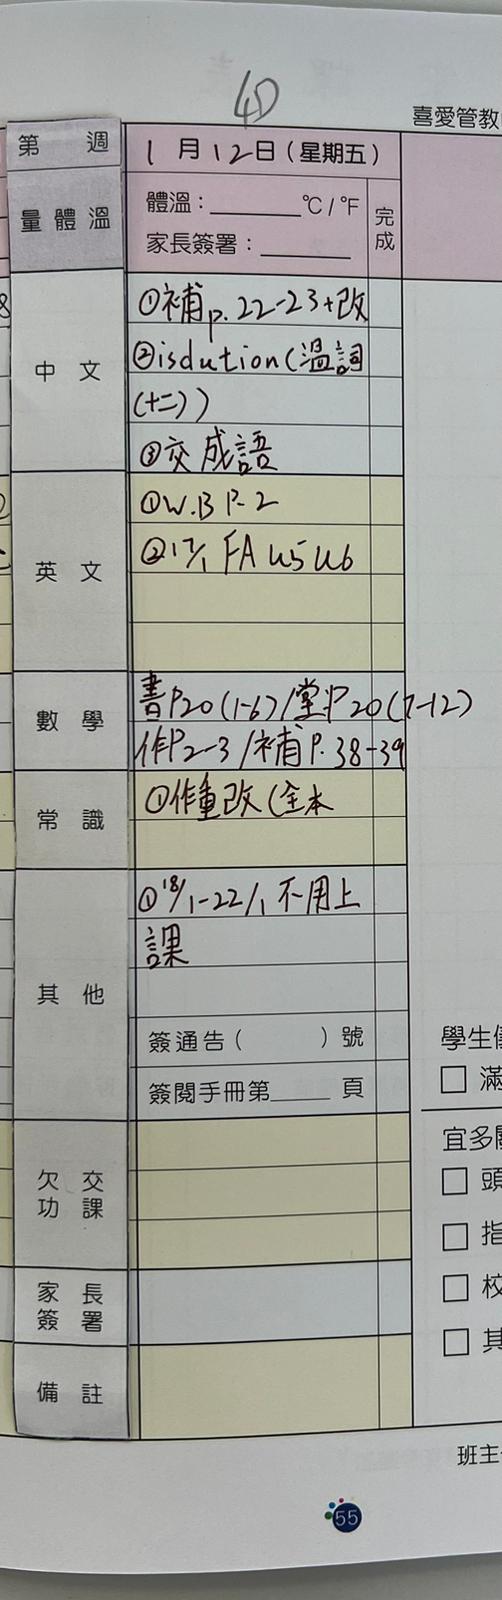 4D
喜愛管教
第 週
1 月 12 日 (星期五)
量體溫
體溫：________℃/℉
家長簽署：________
完成
中 文
①補p.22-23+改
②isdution(溫詞
(十二))
③交成語
英 文
①W.B P.2
②17/1 FA u5 u6
數 學
書P20(1-6)/堂P20(7-12)
作P2-3/補P.38-39
常 識
①作重改(全本
其 他
①18/1-22/1 不用上
課
簽通告( )號
簽閱手冊第_____ 頁
欠 交
功 課
家 長
簽 署
備 註
學生
滿
宜多
頭
指
校
其
班主
55